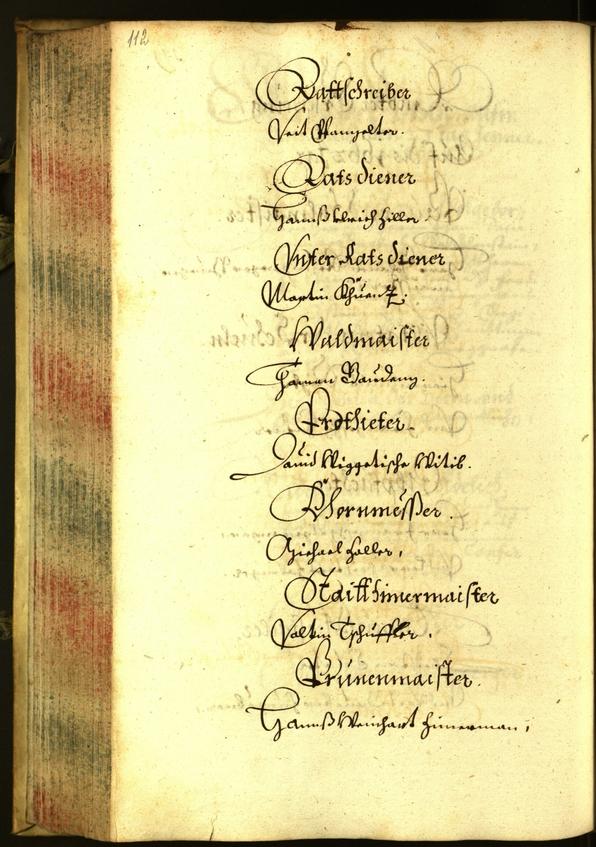 112
Rattschreiber
Veit Wangelter.
Ratsdiener
Hannß Ulrich Hiller
Vnter Ratsdiener
Martin Khüentz.
Waldmaister
Thaman
Brothieter.
Dauid Wiggetische Witib.
Khornmesser.
Michael Haller,
Statt Zimermaister
Valtin Tschuffler.
Brünenmaister.
Hannß Weinhart Zimerman,